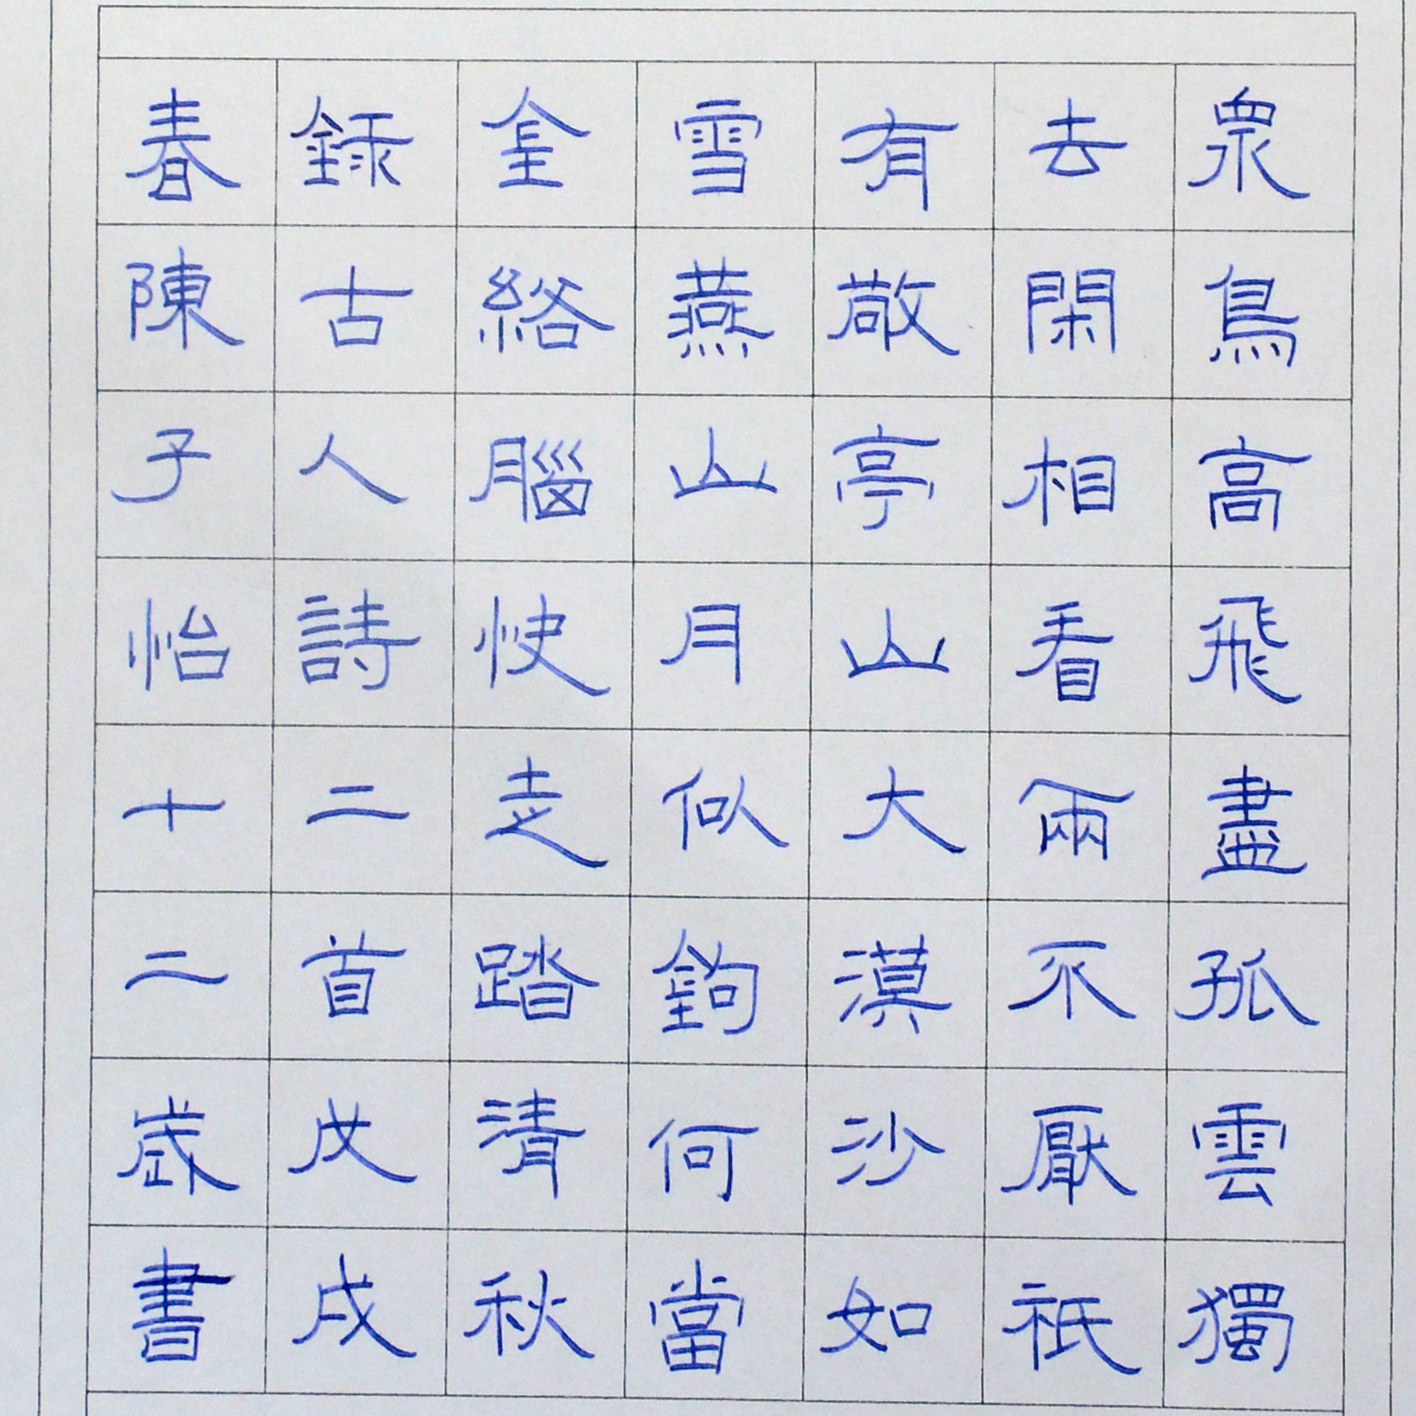 眾鳥高飛盡孤雲獨
去閑相看兩不厭祇
有敬亭山大漠沙如
雪燕山月似鉤何當
金絡腦快走踏清秋
錄古人詩二首戊戌
春陳子怡十二歲書